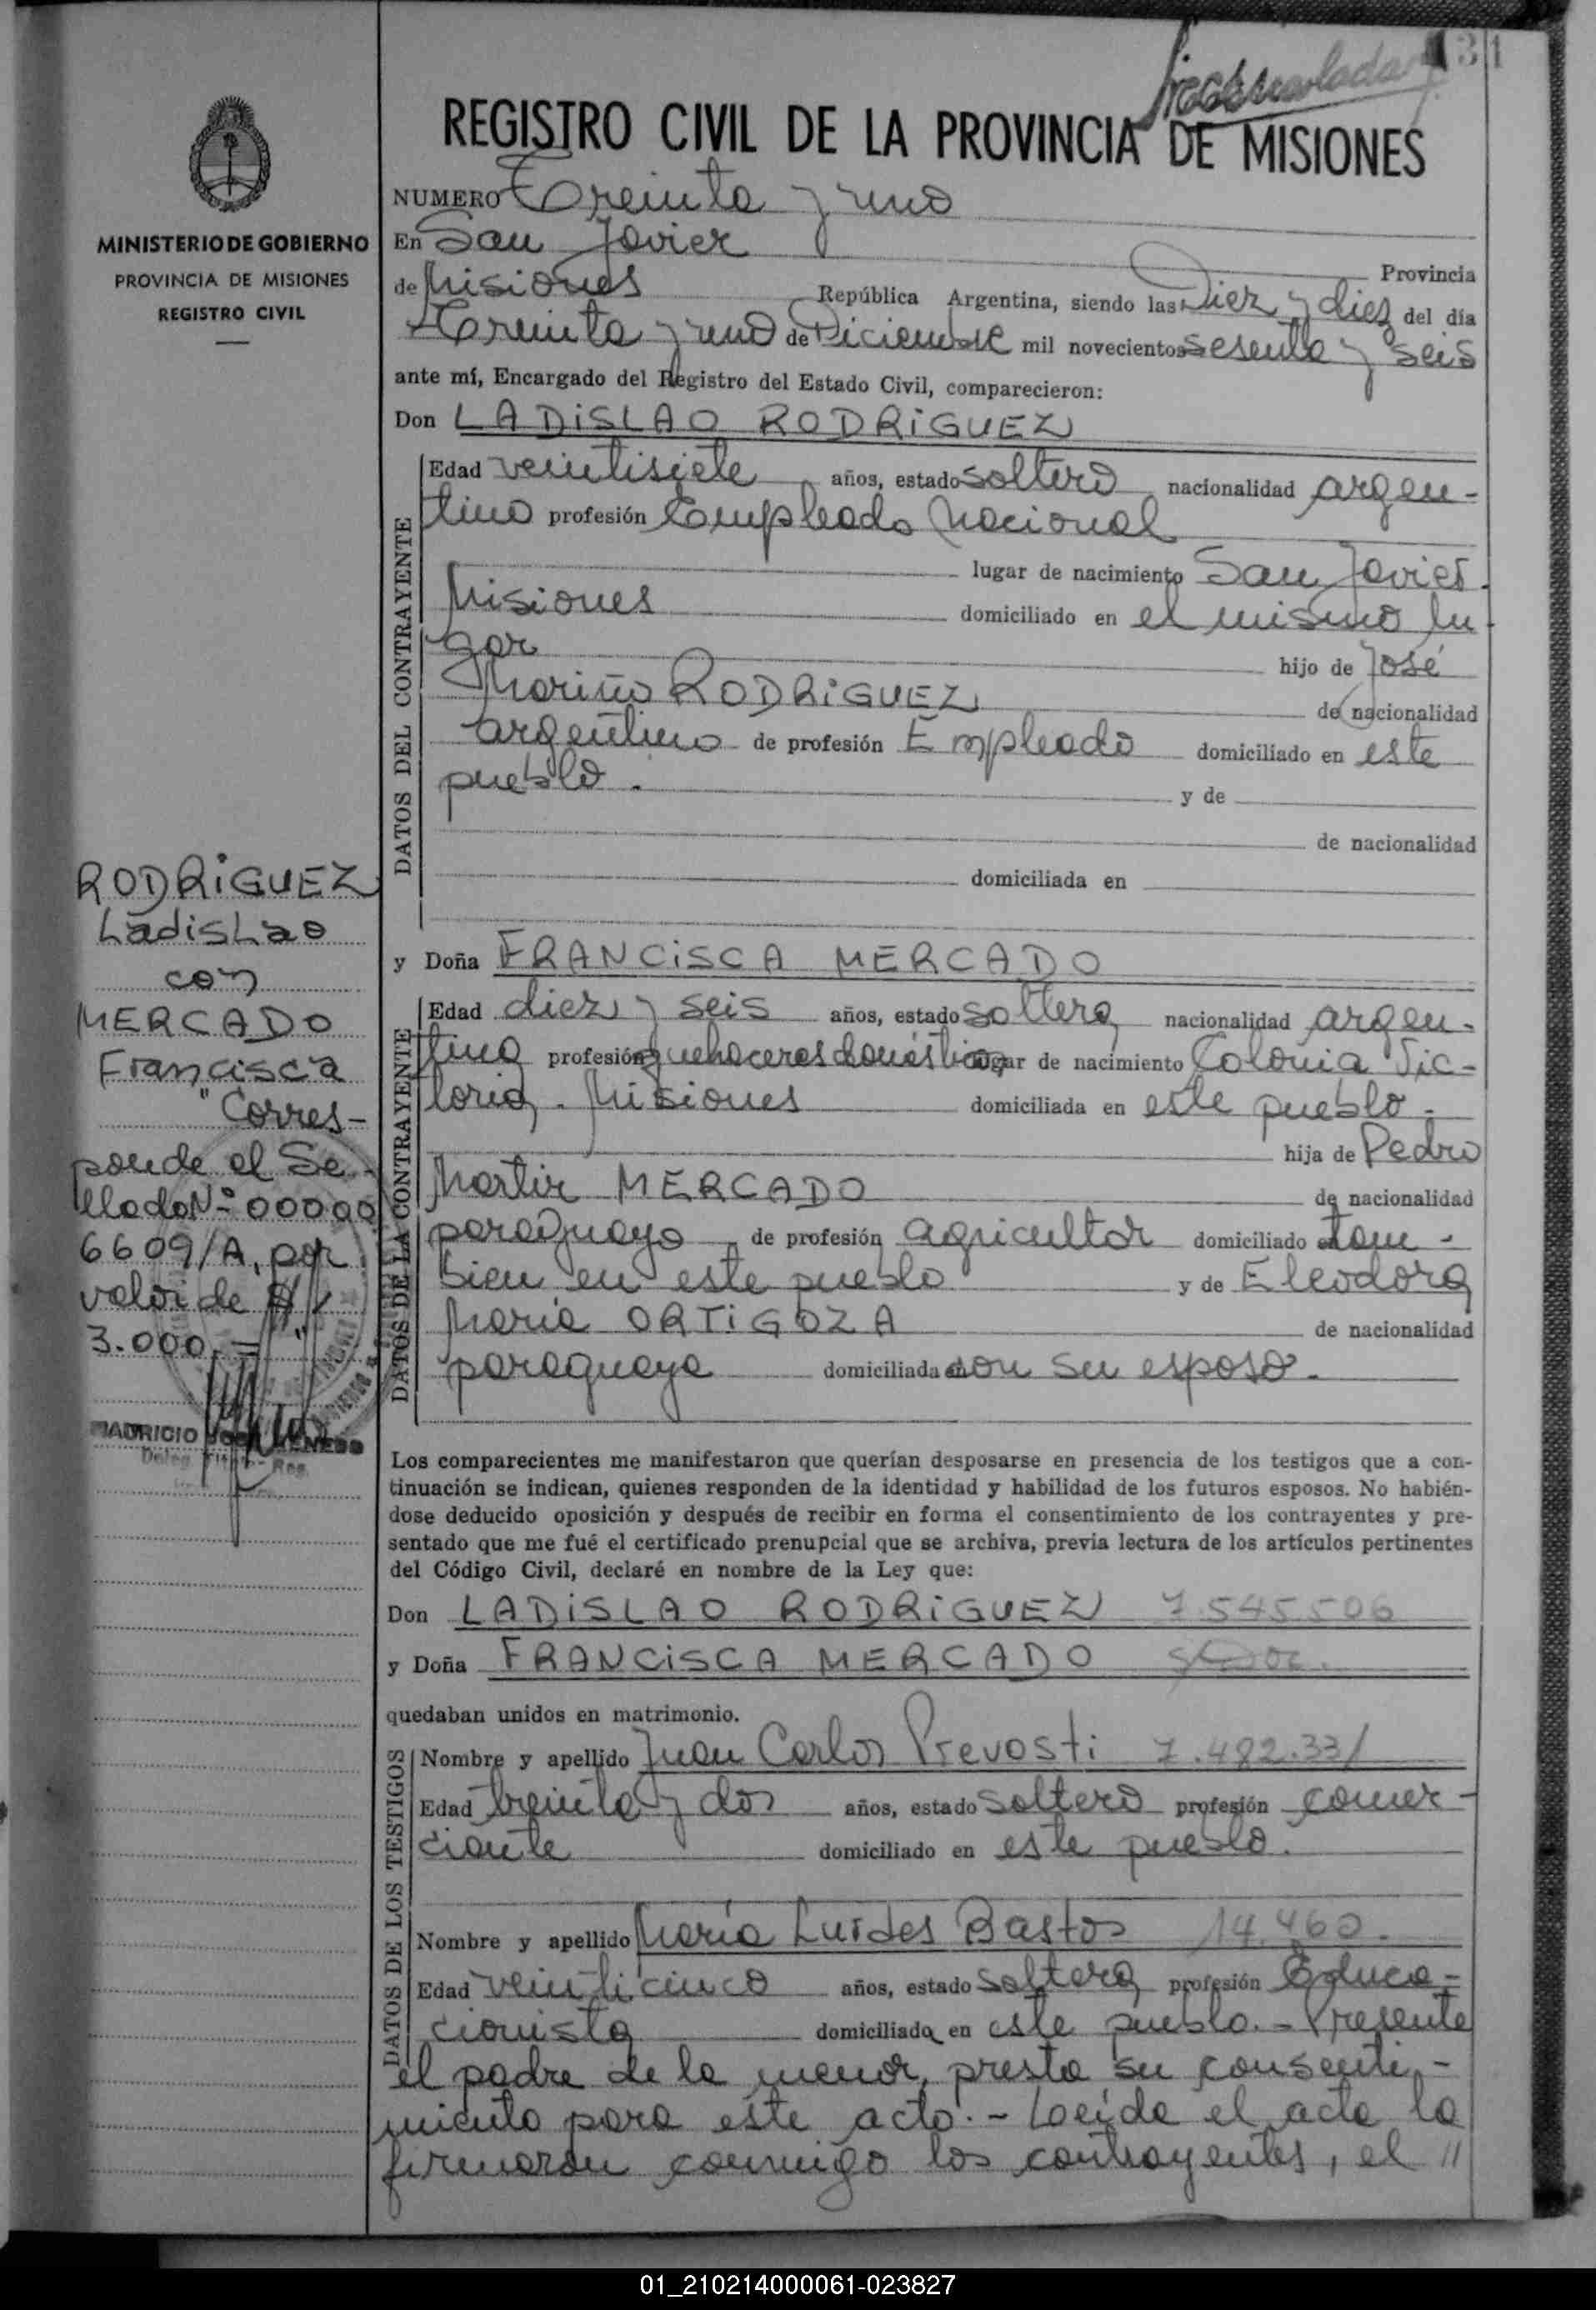 31
REGISTRO CIVIL DE LA PROVINCIA DE MISIONES
MINISTERIO DE GOBIERNO
PROVINCIA DE MISIONES
REGISTRO CIVIL
NUMERO Treinta y uno
En San Javier Provincia
de Misiones República Argentina, siendo las Diez y diez del día
Treinta y uno de Diciembre mil novecientos sesenta y seis
ante mí, Encargado del Registro del Estado Civil, comparecieron:
Don LADISLAO RODRIGUEZ
DATOS DEL CONTRAYENTE
Edad veintisiete años, estado soltero nacionalidad argen-
tino profesión Empleado Nacional
lugar de nacimiento San Javier.
Misiones domiciliado en el mismo lu-
gar hijo de José
Mariño RODRIGUEZ de nacionalidad
argentino de profesión Empleado domiciliado en este
pueblo. y de
de nacionalidad
domiciliada en
y Doña FRANCISCA MERCADO
DATOS DE LA CONTRAYENTE
Edad diez y seis años, estado soltera nacionalidad argen-
tina profesión quehaceres domésticos lugar de nacimiento Colonia Vic-
toria. Misiones domiciliada en este pueblo.
hija de Pedro
Martir MERCADO de nacionalidad
paraguayo de profesión agricultor domiciliado tam-
bien en este pueblo y de Eleodora
María ORTIGOZA de nacionalidad
paraguaya domiciliada con su esposo.
RODRIGUEZ
Ladislao
con
MERCADO
Francisca
"Corres-
ponde el Se-
lladoNº 00000
6609/A, por
valor de $
3.000.= "
MAURICIO
Los comparecientes me manifestaron que querían desposarse en presencia de los testigos que a con-
tinuación se indican, quienes responden de la identidad y habilidad de los futuros esposos. No habién-
dose deducido oposición y después de recibir en forma el consentimiento de los contrayentes y pre-
sentado que me fué el certificado prenupcial que se archiva, previa lectura de los artículos pertinentes
del Código Civil, declaré en nombre de la Ley que:
Don LADISLAO RODRIGUEZ 7.545.506
y Doña FRANCISCA MERCADO
quedaban unidos en matrimonio.
DATOS DE LOS TESTIGOS
Nombre y apellido Juan Carlos Prevosti 7.482.331
Edad treinta y dos años, estado soltero profesión comer-
ciante domiciliado en este pueblo.
Nombre y apellido María Lurdes Bastos 14.460.
Edad veinticinco años, estado soltera profesión Educa-
cionista domiciliada en este pueblo.- Presente
el padre de la menor, presta su consenti-
miento para este acto.- Leída el acta la
firmaron conmigo los contrayentes, el "
01_210214000061-023827